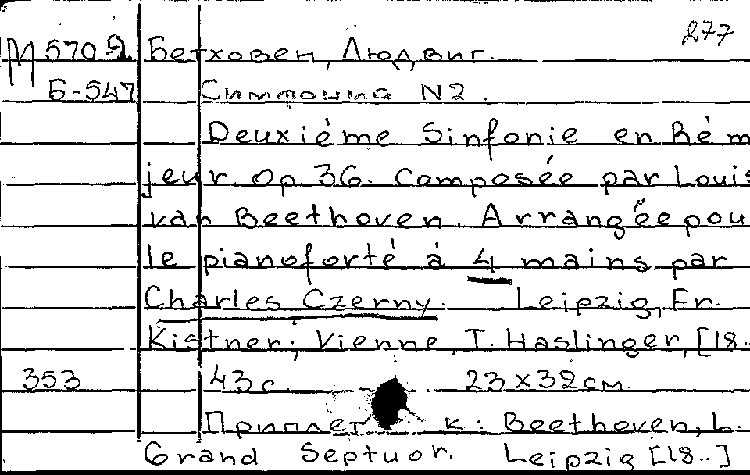 277
М 570 Я Бетховен, Людвиг.
Б-547 Симфония N2.
Deuxiéme Sinfonie en Ré m
jeur Op 36. Composée par Louis
van Beethoven. Arrangée pou
le pianoforté à 4 mains par
Charles Czerny. Leipzig, Fr.
Kistner; Vienne, T. Haslinger, [18..
353 43 с. 23x32см
Приплет к: Beethoven, L.
Grand Septuor. Leipzig [18..]